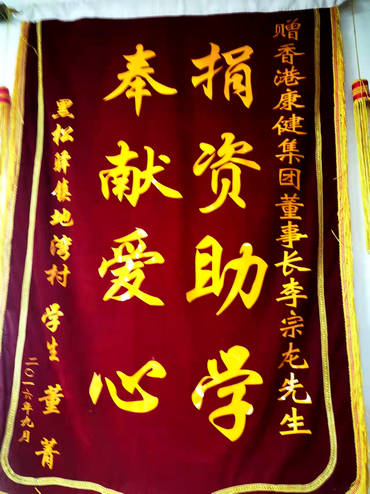 赠香港康健集团董事长李宗龙先生
捐资助学
奉献爱心
黑松驿集地湾村 学生 董菁
二〇一六年九月